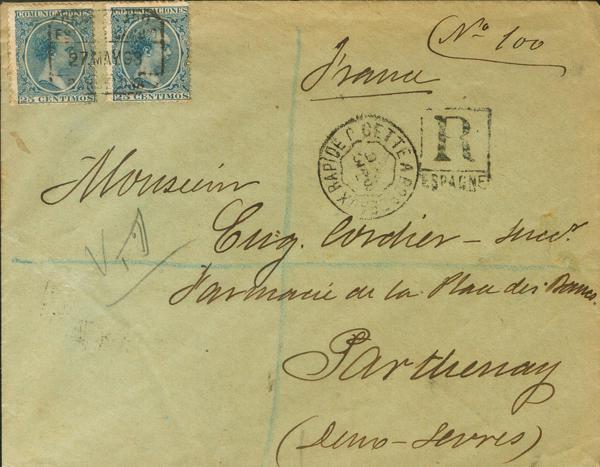 COMUNICACIONES COMUNICACIONES
27 MAY 99
25 CENTIMOS 25 CENTIMOS
Nº 100
France
R
ESPAGNE
RAPIDE CETTE A
Monsieur
Eug. Cordier - succr.
Farmacie de la Place des Bancs.
Parthenay
(Deux-Sevres)